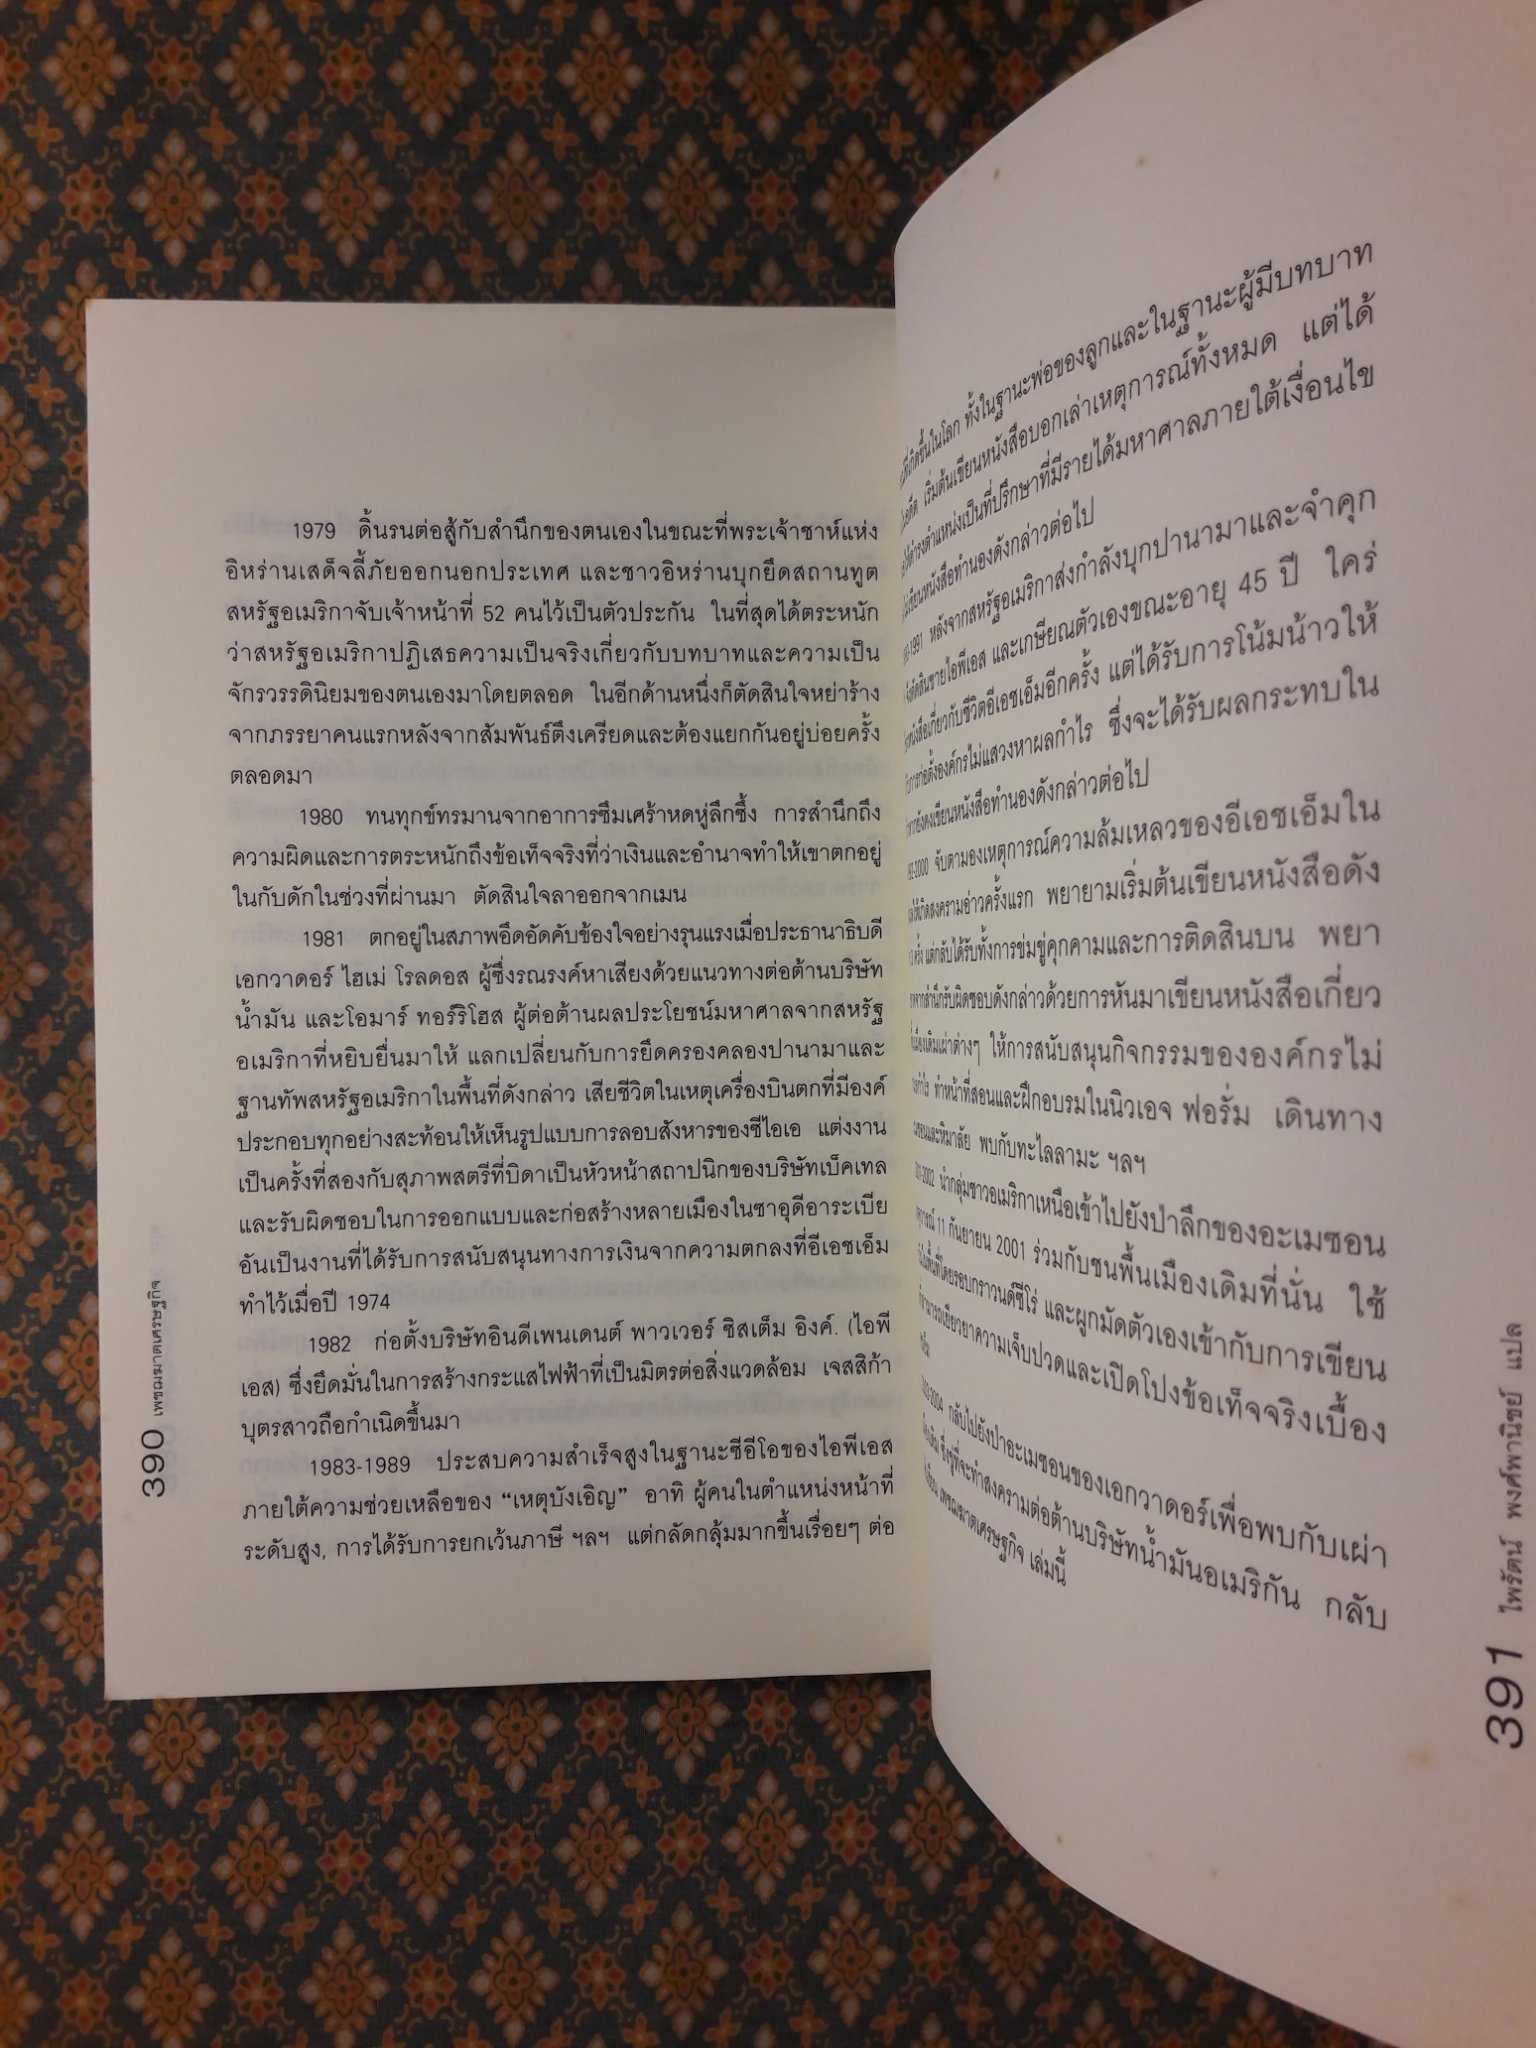 1979 ดิ้นรนต่อสู้กับสำนึกของตนเองในขณะที่พระเจ้าชาห์แห่ง
อิหร่านเสด็จลี้ภัยออกนอกประเทศ และชาวอิหร่านบุกยึดสถานทูต
สหรัฐอเมริกาจับเจ้าหน้าที่ 52 คนไว้เป็นตัวประกัน ในที่สุดได้ตระหนัก
ว่าสหรัฐอเมริกาปฏิเสธความเป็นจริงเกี่ยวกับบทบาทและความเป็น
จักรวรรดินิยมของตนเองมาโดยตลอด ในอีกด้านหนึ่งก็ตัดสินใจหย่าร้าง
จากภรรยาคนแรกหลังจากสัมพันธ์ตึงเครียดและต้องแยกกันอยู่บ่อยครั้ง
ตลอดมา
1980 ทนทุกข์ทรมานจากอาการซึมเศร้าหดหู่ลึกซึ้ง การสำนึกถึง
ความผิดและการตระหนักถึงข้อเท็จจริงที่ว่าเงินและอำนาจทำให้เขาตกอยู่
ในกับดักในช่วงที่ผ่านมา ตัดสินใจลาออกจากเมน
1981 ตกอยู่ในสภาพอึดอัดคับข้องใจอย่างรุนแรงเมื่อประธานาธิบดี
เอกวาดอร์ ไฮเม่ โรลดอส ผู้ซึ่งรณรงค์หาเสียงด้วยแนวทางต่อต้านบริษัท
น้ำมัน และโอมาร์ ทอร์ริโฮส ผู้ต่อต้านผลประโยชน์มหาศาลจากสหรัฐ
อเมริกาที่หยิบยื่นมาให้ แลกเปลี่ยนกับการยึดครองคลองปานามาและ
ฐานทัพสหรัฐอเมริกาในพื้นที่ดังกล่าว เสียชีวิตในเหตุเครื่องบินตกที่มีองค์
ประกอบทุกอย่างสะท้อนให้เห็นรูปแบบการลอบสังหารของซีไอเอ แต่งงาน
เป็นครั้งที่สองกับสุภาพสตรีที่บิดาเป็นหัวหน้าสถาปนิกของบริษัทเบ็คเทล
และรับผิดชอบในการออกแบบและก่อสร้างหลายเมืองในซาอุดีอาระเบีย
อันเป็นงานที่ได้รับการสนับสนุนทางการเงินจากความตกลงที่อีเอชเอ็ม
ทำไว้เมื่อปี 1974
1982 ก่อตั้งบริษัทอินดีเพนเดนต์ พาวเวอร์ ซิสเต็ม อิงค์. (ไอพี
เอส) ซึ่งยึดมั่นในการสร้างกระแสไฟฟ้าที่เป็นมิตรต่อสิ่งแวดล้อม เจสสิก้า
บุตรสาวถือกำเนิดขึ้นมา
1983-1989 ประสบความสำเร็จสูงในฐานะซีอีโอของไอพีเอส
ภายใต้ความช่วยเหลือของ “เหตุบังเอิญ” อาทิ ผู้คนในตำแหน่งหน้าที่
ระดับสูง, การได้รับการยกเว้นภาษี ฯลฯ แต่กลัดกลุ้มมากขึ้นเรื่อยๆ ต่อ
390 เพชฌฆาตเศรษฐกิจ
ที่เกิดขึ้นในโลก ทั้งในฐานะพ่อของลูกและในฐานะผู้มีบทบาท
เริ่มต้นเขียนหนังสือบอกเล่าเหตุการณ์ทั้งหมด แต่ได้
ให้ดำรงตำแหน่งเป็นที่ปรึกษาที่มีรายได้มหาศาลภายใต้เงื่อนไข
เขียนหนังสือทำนองดังกล่าวต่อไป
1991 หลังจากสหรัฐอเมริกาส่งกำลังบุกปานามาและจำคุก
ตัดสินขายไอพีเอส และเกษียณตัวเองขณะอายุ 45 ปี ใคร่
หนังสือเกี่ยวกับชีวิตอีเอชเอ็มอีกครั้ง แต่ได้รับการโน้มน้าวให้
การก่อตั้งองค์กรไม่แสวงหาผลกำไร ซึ่งจะได้รับผลกระทบใน
หากยังคงเขียนหนังสือทำนองดังกล่าวต่อไป
2000 จับตามองเหตุการณ์ความล้มเหลวของอีเอชเอ็มใน
ให้เกิดสงครามอ่าวครั้งแรก พยายามเริ่มต้นเขียนหนังสือดัง
3 ครั้ง แต่กลับได้รับทั้งการข่มขู่คุกคามและการติดสินบน พยา
สำนึกรับผิดชอบดังกล่าวด้วยการหันมาเขียนหนังสือเกี่ยว
เมืองเดิมเผ่าต่างๆ ให้การสนับสนุนกิจกรรมขององค์กรไม่
ทำหน้าที่สอนและฝึกอบรมในนิวเอจ ฟอรั่ม เดินทาง
และหิมาลัย พบกับทะไลลามะ ฯลฯ
2002 นำกลุ่มชาวอเมริกาเหนือเข้าไปยังป่าลึกของอะเมซอน
11 กันยายน 2001 ร่วมกับชนพื้นเมืองเดิมที่นั่น ใช้
พื้นที่โดยรอบกราวนด์ซีโร่ และผูกมัดตัวเองเข้ากับการเขียน
สามารถเยียวยาความเจ็บปวดและเปิดโปงข้อเท็จจริงเบื้อง
2004 กลับไปยังป่าอะเมซอนของเอกวาดอร์เพื่อพบกับเผ่า
ซึ่งขู่ที่จะทำสงครามต่อต้านบริษัทน้ำมันอเมริกัน กลับ
เพชฌฆาตเศรษฐกิจ เล่มนี้
391 ไพรัตน์ พงศ์พานิชย์ แปล